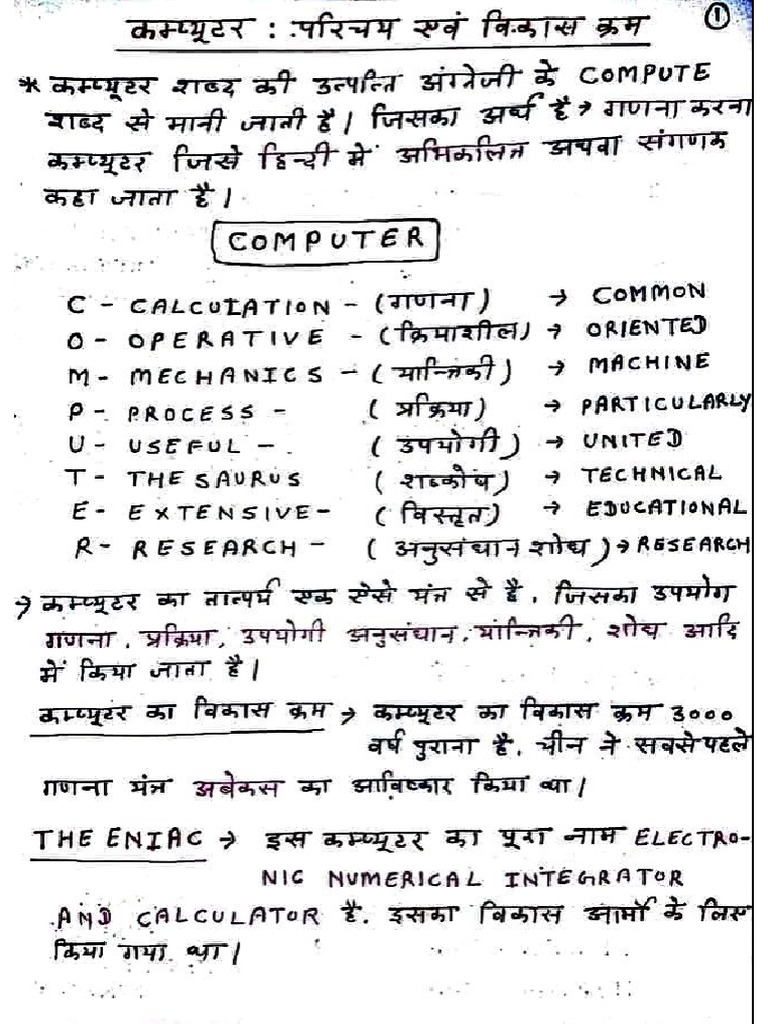 ①
कम्प्यूटर : परिचय एवं विकास क्रम
* कम्प्यूटर शब्द की उत्पत्ति अंग्रेजी के COMPUTE
शब्द से मानी जाती है। जिसका अर्थ है → गणना करना
कम्प्यूटर जिसे हिन्दी में अभिकलित्र अथवा संगणक
कहा जाता है।
COMPUTER
C - CALCULATION - (गणना) → COMMON
O - OPERATIVE - (क्रियाशील) → ORIENTED
M - MECHANICS - (यान्त्रिकी) → MACHINE
P - PROCESS - (प्रक्रिया) → PARTICULARLY
U - USEFUL - (उपयोगी) → UNITED
T - THESAURUS (शब्कोष) → TECHNICAL
E - EXTENSIVE - (विस्तृत) → EDUCATIONAL
R - RESEARCH - (अनुसंधान शोध) → RESEARCH
→ कम्प्यूटर का तात्पर्य एक ऐसे यंत्र से है, जिसका उपयोग
गणना, प्रक्रिया, उपयोगी अनुसंधान, यान्त्रिकी, शोध आदि
में किया जाता है।
कम्प्यूटर का विकास क्रम → कम्प्यूटर का विकास क्रम 3000
वर्ष पुराना है, चीन ने सबसे पहले
गणना यंत्र अबेकस का आविष्कार किया था।
THE ENIAC → इस कम्प्यूटर का पूरा नाम ELECTRO-
NIC NUMERICAL INTEGRATOR
AND CALCULATOR है. इसका विकास आर्मी के लिए
किया गया था।